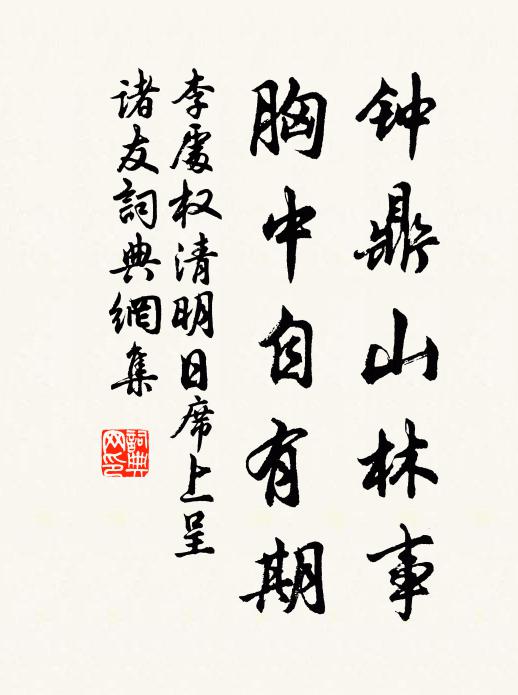 钟鼎山林事
胸中自有期
李處权清明日席上呈
诸友詞典網集
詞典
网印